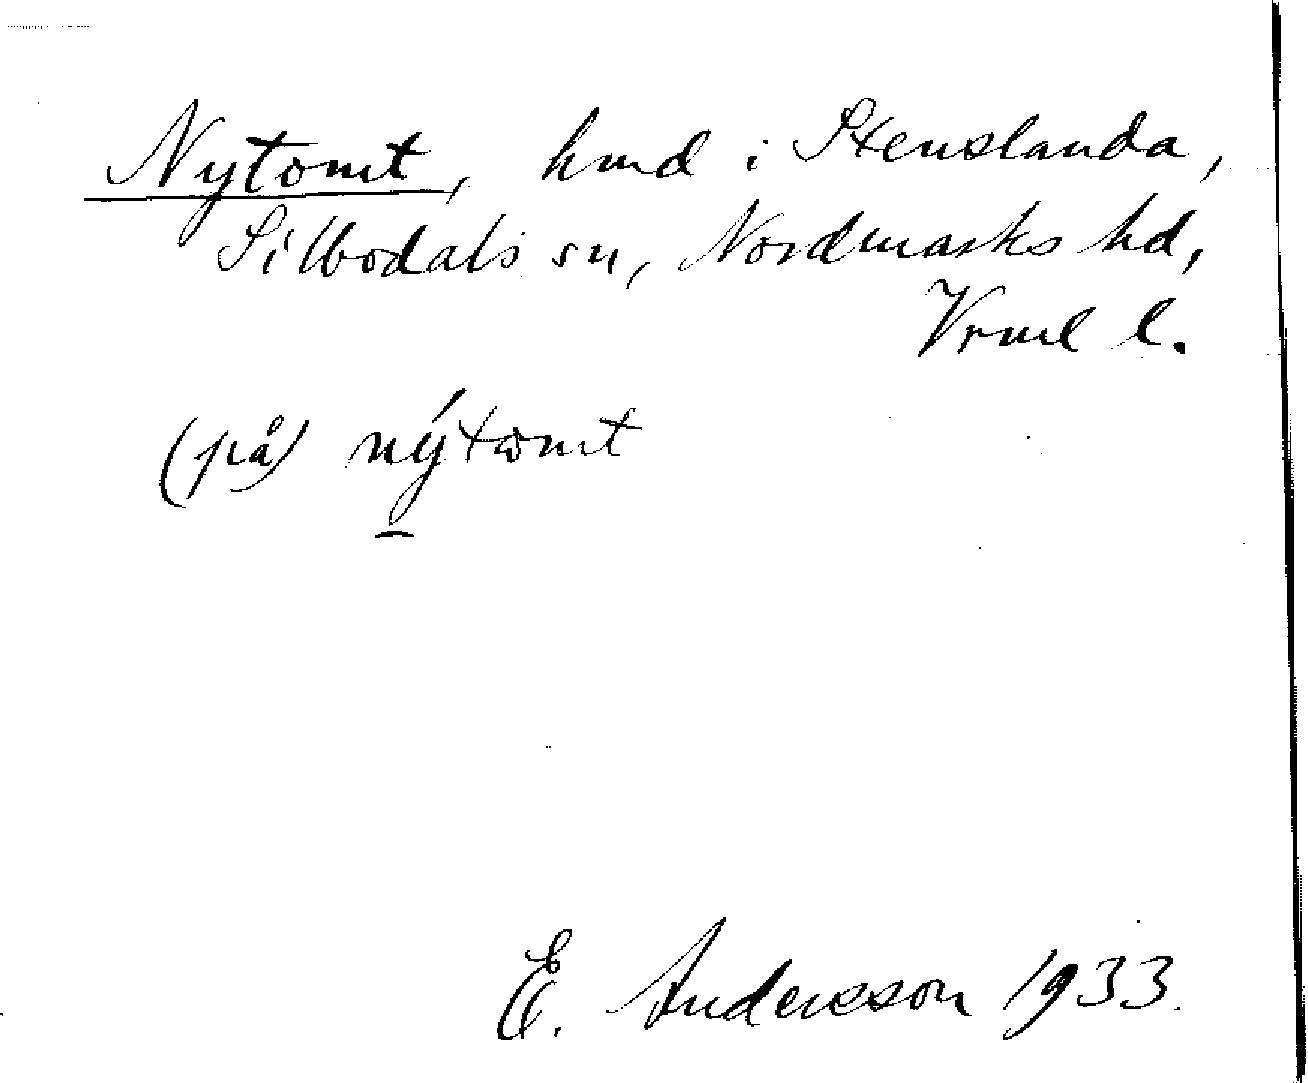 Nytomt, hmd i Stenslanda,
Silbodals sn, Nordmarks hd,
Vrml l.
(på) nýtomt
E. Andersson 1933.